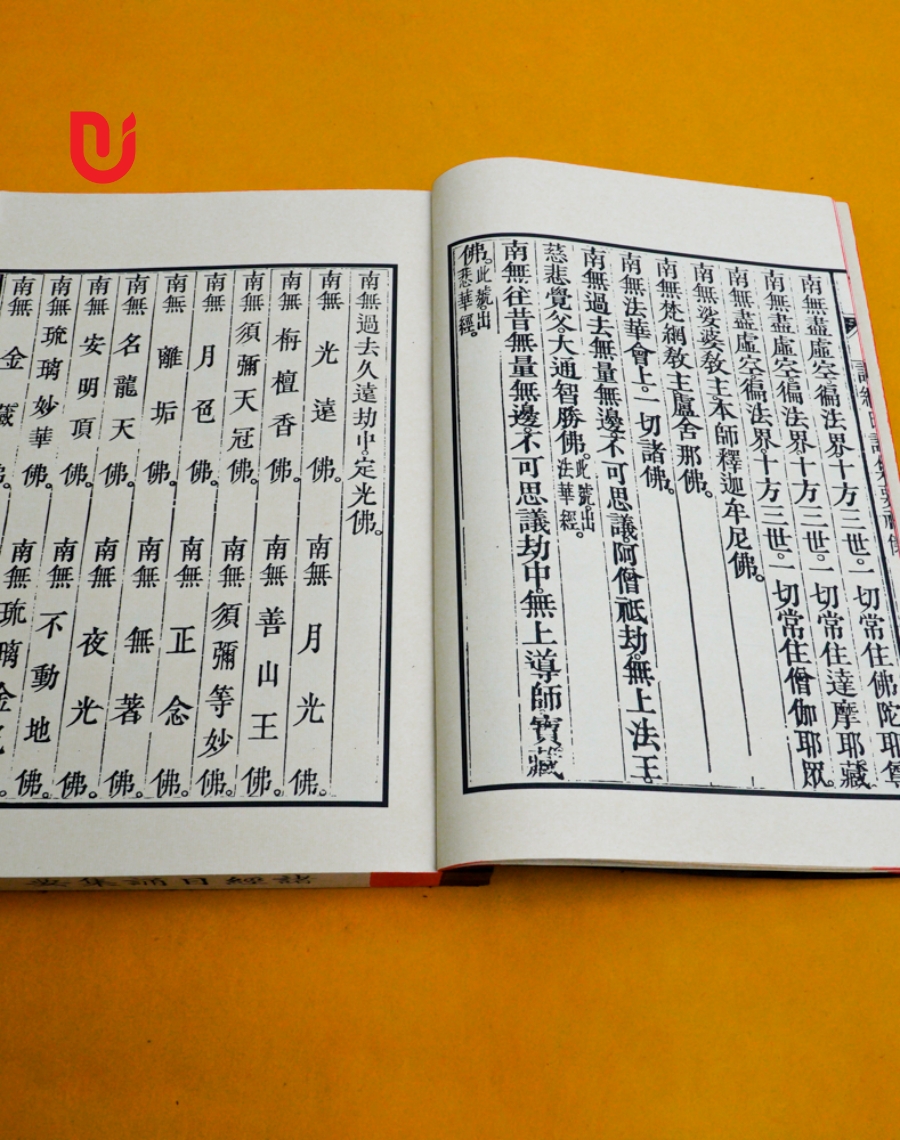 南無盡虛空徧法界十方三世。一切常住佛陀耶尊
南無盡虛空徧法界。十方三世。一切常住達摩耶藏
南無盡虛空徧法界。十方三世。一切常住僧伽耶眾。
南無娑婆敎主。本師釋迦牟尼佛。
南無梵網敎主。盧舍那佛。
南無法華會上。一切諸佛。
南無過去無量無邊。不可思議阿僧祇劫。無上法王
慈悲覺父。大通智勝佛。此號出法華經。
南無往昔無量無邊。不可思議劫中。無上導師寶藏
佛。此號出悲華經。
南無過去久遠劫中。定光佛。
南無光遠佛。南無月光佛。
南無栴檀香佛。南無善山王佛。
南無須彌天冠佛。南無須彌等妙佛。
南無月色佛。南無正念佛。
南無離垢佛。南無無著佛。
南無名龍天佛。南無夜光佛。
南無安明頂佛。南無不動地佛。
南無琉璃妙華佛。南無琉璃金色佛。
南無金藏佛。
諸經日誦集要